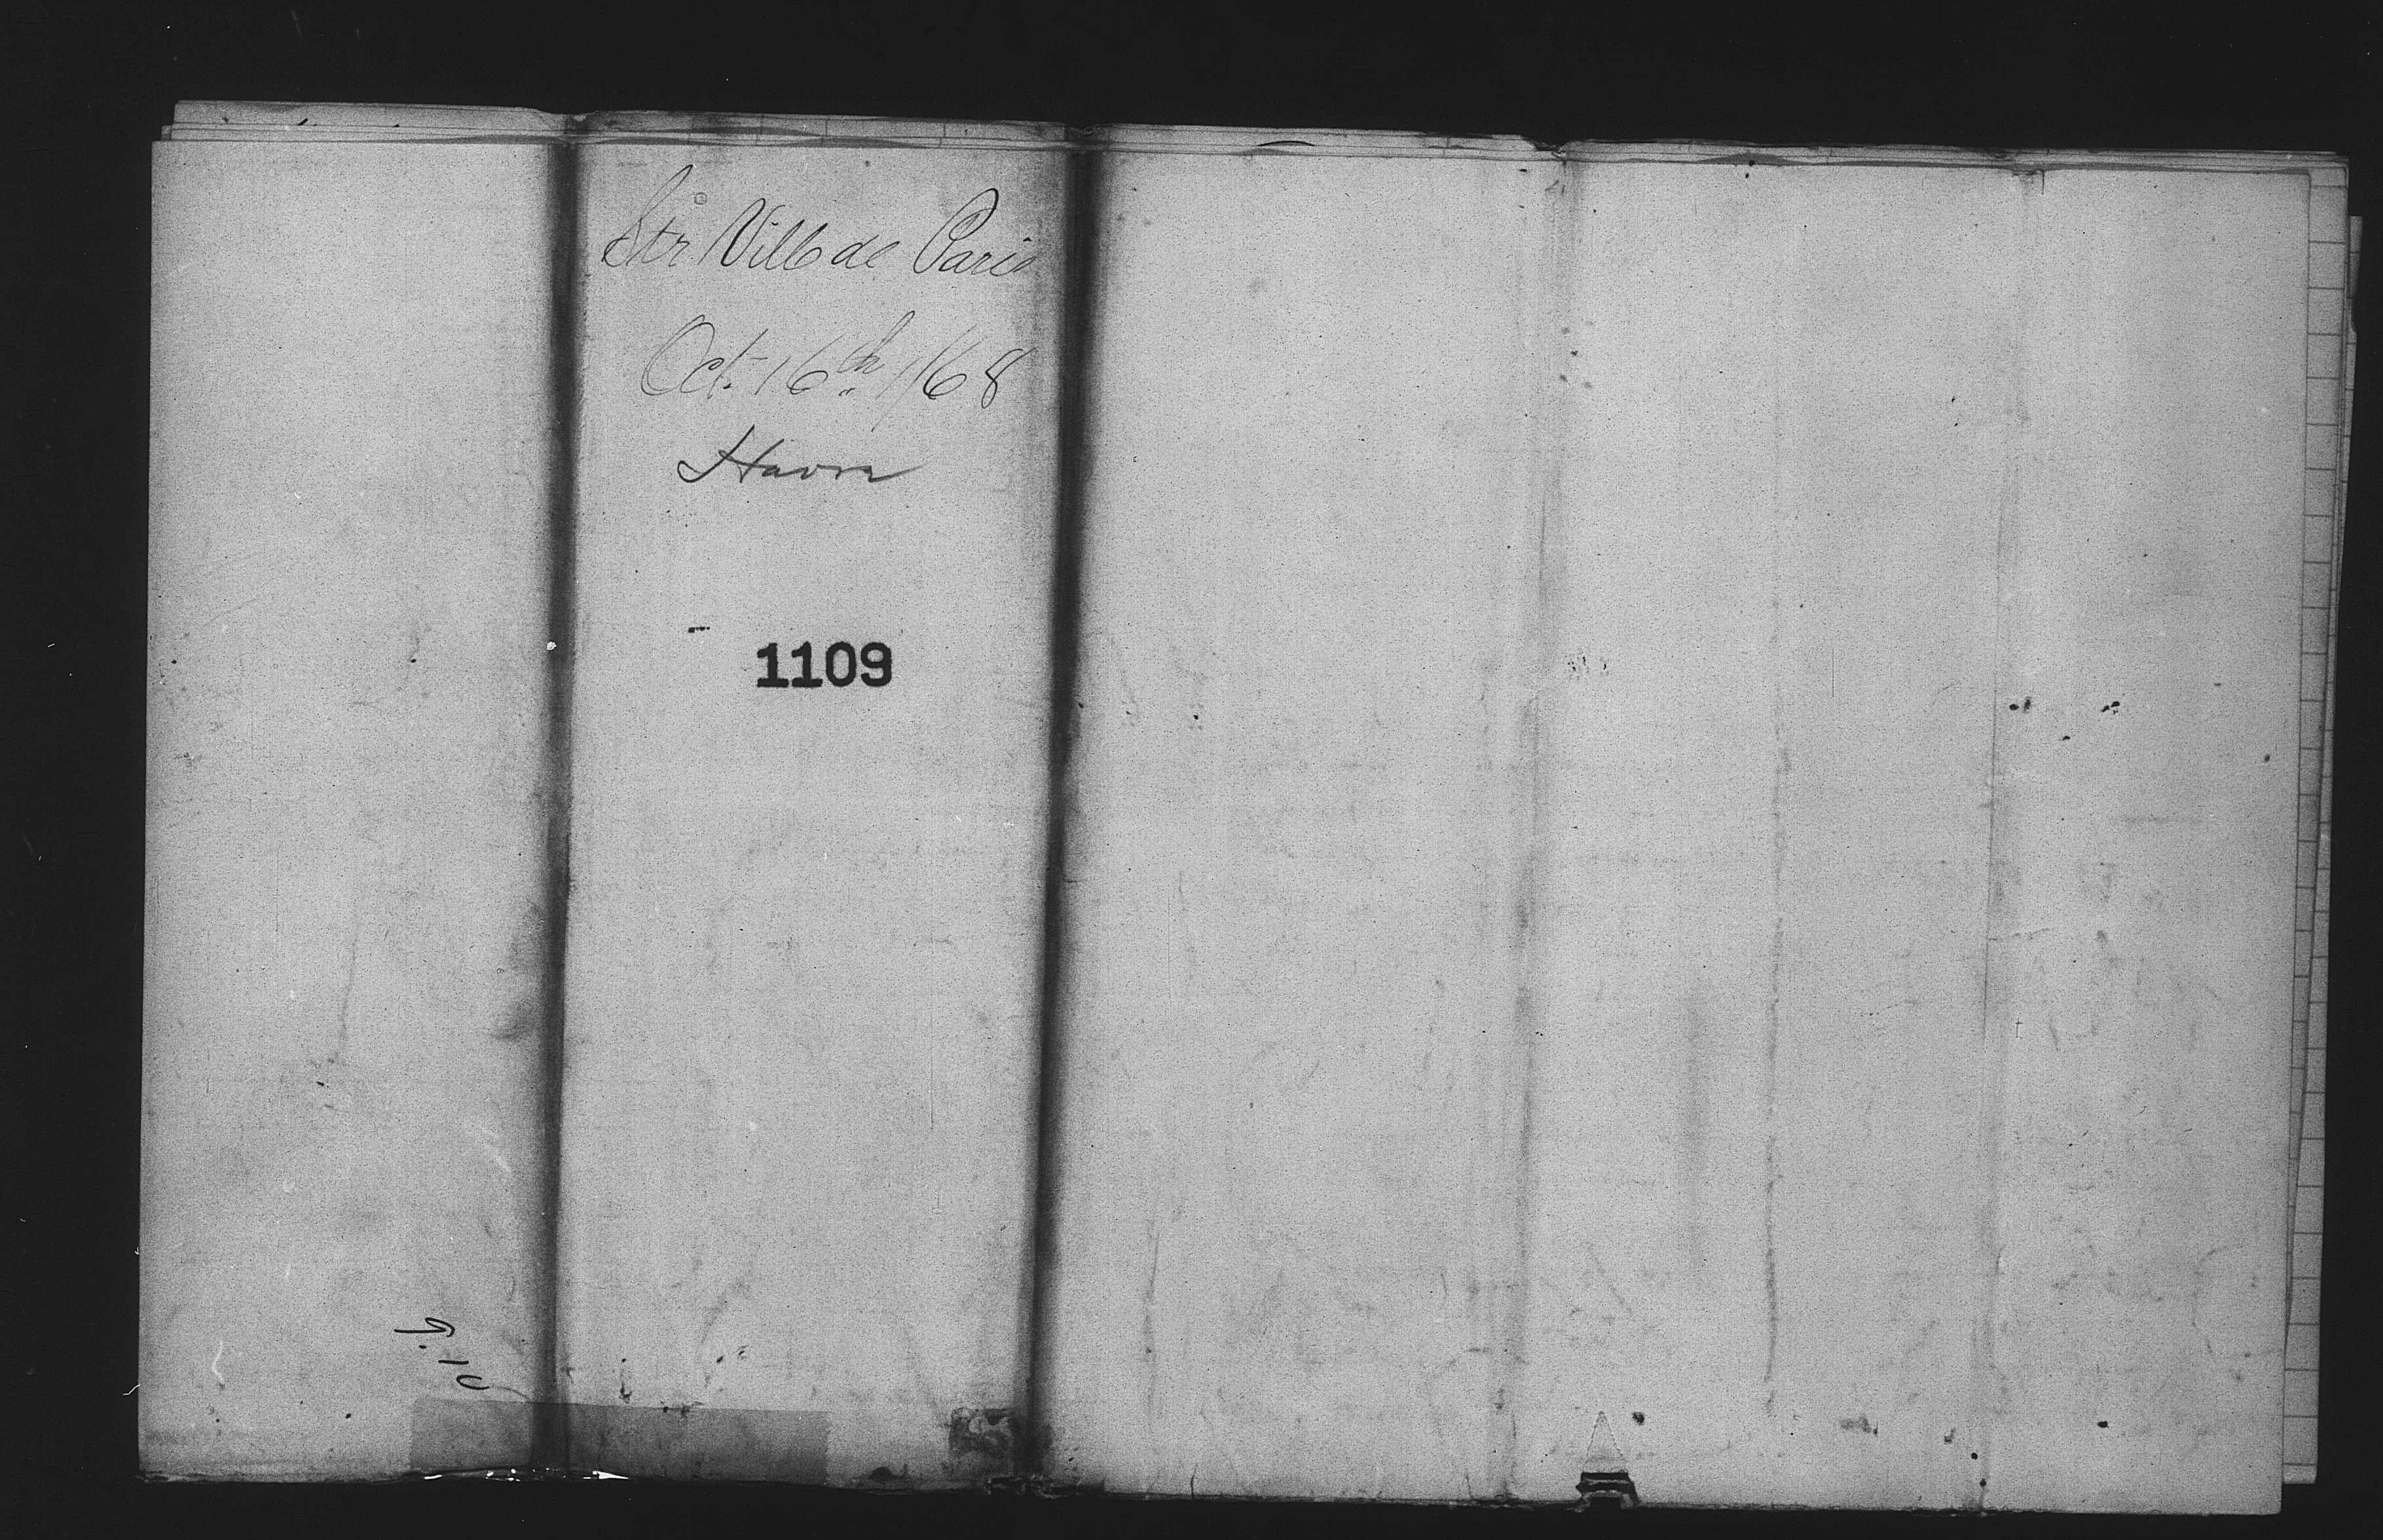 Str Ville de Paris
Oct. 16th /68
Havre
1109